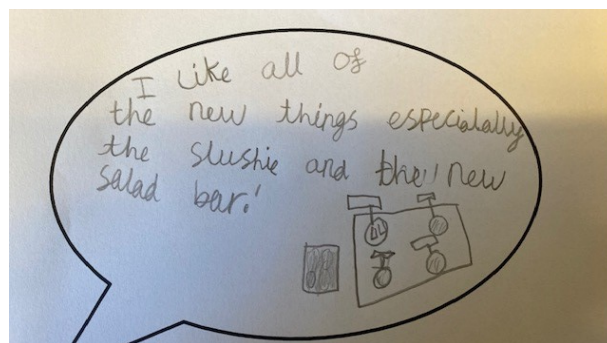 I Like all of
the new things especialally
the slushie and the new
salad bar!